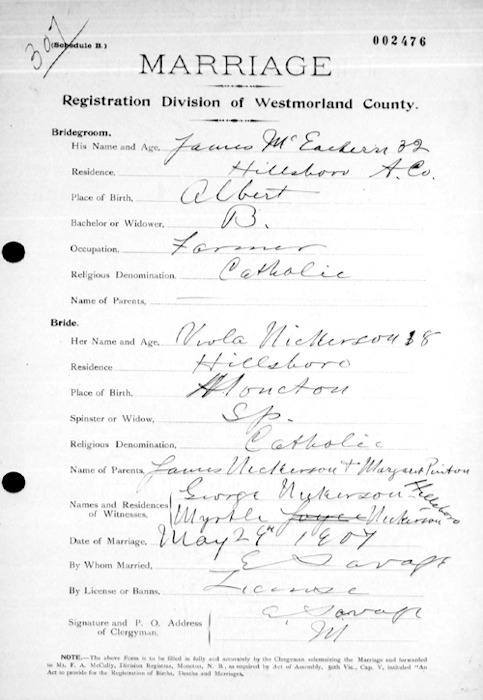 307
(Schedule B.)
002476
MARRIAGE
Registration Division of Westmorland County.
Bridegroom.
His Name and Age, James McEachern 32
Residence, Hillsboro A. Co.
Place of Birth, Albert
Bachelor or Widower, B.
Occupation, Farmer
Religious Denomination, Catholic
Name of Parents,
Bride.
Her Name and Age, Viola Nickerson 18
Residence Hillsboro
Place of Birth, Moncton
Spinster or Widow, Sp.
Religious Denomination, Catholic
Name of Parents, James Nickerson + Margaret
Names and Residences of Witnesses, George Nickerson Hillsboro
Myrtle Joyce Nickerson
Date of Marriage, May 29th 1907
By Whom Married, E Savage
By License or Banns, License
Signature and P. O. Address of Clergyman. E. Savage
M
NOTE.—The above Form is to be filled in fully and accurately by the Clergyman solemnizing the Marriage and forwarded
to Mr. F. A. McCully, Division Registrar, Moncton, N. B., as required by Act of Assembly, 50th Vic., Cap. V, intituled "An
Act to provide for the Registration of Births, Deaths and Marriages.